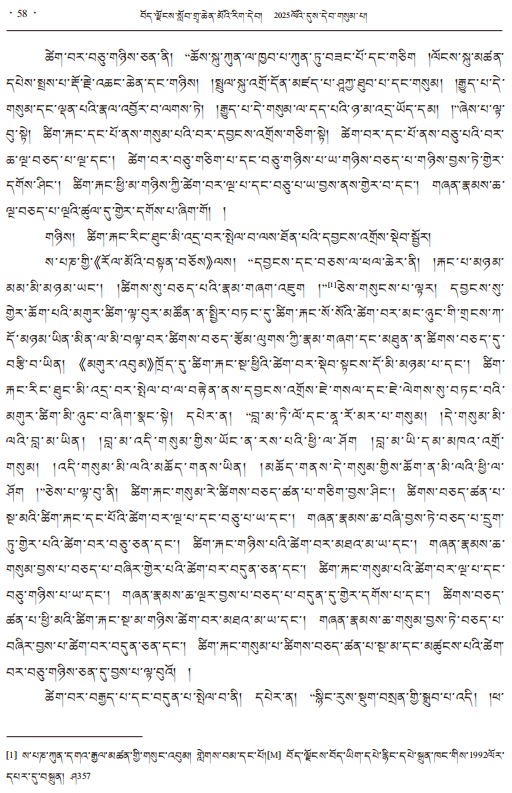 · 58 · བོད་ལྗོངས་སློབ་གྲྭ་ཆེན་མོའི་རིག་དེབ། 2025ལོའི་དུས་དེབ་གསུམ་པ།
ཚེག་བར་བཅུ་གཉིས་ཅན་ནི། “ཆོས་སྐུ་ཀུན་ལ་ཁྱབ་པ་ཀུན་ཏུ་བཟང་པོ་དང་གཅིག །ལོངས་སྐུ་མཚན་
དཔེས་སྤྲས་པ་རྡོ་རྗེ་འཆང་ཆེན་དང་གཉིས། །སྤྲུལ་སྐུ་འགྲོ་དོན་མཛད་པ་ཤཱཀྱ་ཐུབ་པ་དང་གསུམ། །རྒྱུད་པ་དེ་
གསུམ་དང་ལྡན་པའི་རྣལ་འབྱོར་བ་ལགས་ཏེ། །རྒྱུད་པ་དེ་གསུམ་ལ་དད་པའི་ཉ་མ་འདྲ་ཡོད་དམ། །”ཞེས་པ་ལྟ་
བུ་སྟེ། ཚིག་རྐང་དང་པོ་ནས་གསུམ་པའི་བར་དབྱངས་འགྲོས་གཅིག་སྟེ། ཚེག་བར་དང་པོ་ནས་བཅུ་པའི་བར་
ཆ་ལྔ་བཅད་པ་ལྔ་དང་། ཚེག་བར་བཅུ་གཅིག་པ་དང་བཅུ་གཉིས་པ་ཡ་གཉིས་བཅད་པ་གཉིས་བྱས་ཏེ་གྱེར་
དགོས་ཤིང་། ཚིག་རྐང་ཕྱི་མ་གཉིས་ཀྱི་ཚེག་བར་ལྔ་པ་དང་བཅུ་པ་ཡ་བྱས་ནས་གྱེར་བ་དང་། གཞན་རྣམས་ཆ་
ལྔ་བཅད་པ་ལྔའི་ཚུལ་དུ་གྱེར་དགོས་པ་ཞིག་གོ། །
གཉིས། ཚིག་རྐང་རིང་ཐུང་མི་འདྲ་བར་སྤེལ་བ་ལས་ཐོན་པའི་དབྱངས་འགྲོས་སྡེབ་སྦྱོར།
ས་པཎ་གྱི་《རོལ་མོའི་བསྟན་བཅོས》ལས། “དབྱངས་དང་བཅས་ལ་ཕལ་ཆེར་ནི། །རྐང་པ་མཉམ་
མམ་མི་མཉམ་ཡང་། །ཚིགས་སུ་བཅད་པའི་རྣམ་གཞག་འཇུག །”[1]ཅེས་གསུངས་པ་ལྟར། དབྱངས་སུ་
གྱེར་ཆོག་པའི་མགུར་ཚིག་ལྟ་བུར་མཚོན་ན་སྤྱིར་བཏང་དུ་ཚིག་རྐང་སོ་སོའི་ཚེག་བར་མང་ཉུང་གི་གྲངས་ཀ་
དོ་མཉམ་ཡིན་མིན་ལ་མི་བལྟ་བར་ཚིགས་བཅད་རྩོམ་ལུགས་ཀྱི་རྣམ་གཞག་དང་མཐུན་ན་ཚིགས་བཅད་དུ་
བརྩི་བ་ཡིན། 《མགུར་འབུམ》ཁྲོད་དུ་ཚིག་རྐང་སྔ་ཕྱིའི་ཚེག་བར་སྡེབ་སྟངས་དོ་མི་མཉམ་པ་དང་། ཚིག་
རྐང་རིང་ཐུང་མི་འདྲ་བར་སྤེལ་བ་ལ་བརྟེན་ནས་དབྱངས་འགྲོས་ཇེ་གསལ་དང་ཇེ་ལེགས་སུ་བཏང་བའི་
མགུར་ཚིག་མི་ཉུང་བ་ཞིག་སྣང་སྟེ། དཔེར་ན། “བླ་མ་ཏཻ་ལོ་དང་ནཱ་རོ་མར་པ་གསུམ། །དེ་གསུམ་མི་
ལའི་བླ་མ་ཡིན། །བླ་མ་འདི་གསུམ་གྱིས་ཡོང་ན་རས་པའི་ཕྱི་ལ་ཤོག །བླ་མ་ཡི་དམ་མཁའ་འགྲོ་
གསུམ། །འདི་གསུམ་མི་ལའི་མཆོད་གནས་ཡིན། །མཆོད་གནས་དེ་གསུམ་གྱིས་ཆོག་ན་མི་ལའི་ཕྱི་ལ་
ཤོག །”ཅེས་པ་ལྟ་བུ་ནི། ཚིག་རྐང་གསུམ་རེ་ཚིགས་བཅད་ཚན་པ་གཅིག་བྱས་ཤིང་། ཚིགས་བཅད་ཚན་པ་
སྔ་མའི་ཚིག་རྐང་དང་པོའི་ཚེག་བར་ལྔ་པ་དང་བཅུ་པ་ཡ་དང་། གཞན་རྣམས་ཆ་བཞི་བྱས་ཏེ་བཅད་པ་དྲུག་
ཏུ་གྱེར་པའི་ཚེག་བར་བཅུ་ཅན་དང་། ཚིག་རྐང་གཉིས་པའི་ཚེག་བར་མཐའ་མ་ཡ་དང་། གཞན་རྣམས་ཆ་
གསུམ་བྱས་པ་བཅད་པ་བཞིར་གྱེར་པའི་ཚེག་བར་བདུན་ཅན་དང་། ཚིག་རྐང་གསུམ་པའི་ཚེག་བར་ལྔ་པ་དང་
བཅུ་གཉིས་པ་ཡ་དང་། གཞན་རྣམས་ཆ་ལྔར་བྱས་པ་བཅད་པ་བདུན་དུ་གྱེར་དགོས་པ་དང་། ཚིགས་བཅད་
ཚན་པ་ཕྱི་མའི་ཚིག་རྐང་སྔ་མ་གཉིས་ཚེག་བར་མཐའ་མ་ཡ་དང་། གཞན་རྣམས་ཆ་གསུམ་བྱས་ཏེ་བཅད་པ་
བཞིར་བྱས་པ་ཚེག་བར་བདུན་ཅན་དང་། ཚིག་རྐང་གསུམ་པ་ཚིགས་བཅད་ཚན་པ་སྔ་མ་དང་མཚུངས་པའི་ཚེག་
བར་བཅུ་གཉིས་ཅན་དུ་བྱས་པ་ལྟ་བུའོ། །
ཚེག་བར་བརྒྱད་པ་དང་བདུན་པ་སྤེལ་བ་ནི། དཔེར་ན། “སྙིང་རུས་སྡུག་བསྲན་གྱི་སྒྲུབ་པ་འདི། །ཕ་
[1] ས་པཎ་ཀུན་དགའ་རྒྱལ་མཚན་གྱི་གསུང་འབུམ། གླེགས་བམ་དང་པོ།[M] བོད་ལྗོངས་བོད་ཡིག་དཔེ་རྙིང་དཔེ་སྐྲུན་ཁང་གིས་1992ལོར་
དཔར་དུ་བསྐྲུན། ཤ357